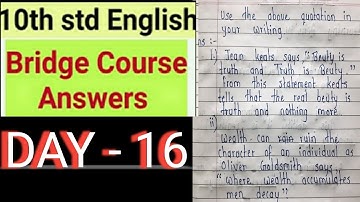 10th std English
Bridge Course
Answers
DAY - 16
Use the above quotation in
your writing.
ns :-
i) Jean keats says "Beuty is
truth and Truth is Beuty."
from this statement keats
tells that the real beuty is
truth and nothing more.
ii)
Wealth can ruin the
character of an individual as
Oliver Goldsmith says
"where wealth accumulates
men decay"